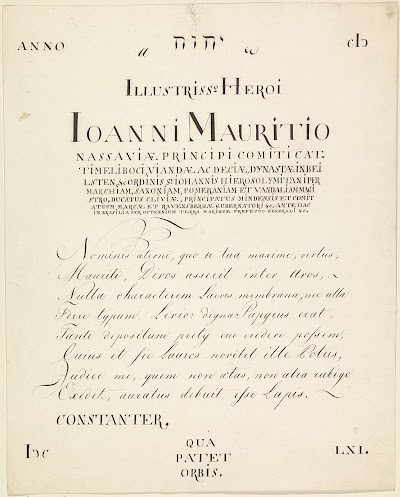 ANNO a יהוה ω cIↄ
ILLUSTRISSº HEROI
IOANNI MAURITIO
NASSAVIÆ, PRINCIPI COMITI CAT
TIMELIBOCI, VIANDÆ, AC DECIÆ, DYNASTÆ IN BEI
LSTEN, &c ORDINIS Sti IOHANNIS HIEROSOLYMITANI PER
MARCHIAM, SAXONIAM, POMERANIAM ET VANDALIAM MAGI
STRO, DUCATUS CLIVIÆ, PRINCIPATUS MINDENSIS ET COMIT
ATUUM MARCÆ, ET RAVENSBERGÆ GUBERNATORI &c. ANTE HAC
IN BRASILIA PER OCTENNIUM TERRA MARIQUE PREFECTO GENERALI &c.
Nominis æterni, quo te tua maxime, virtus,
Mauriti, Divos asserit inter Avos,
Nulla characterem Laevis membrana, nec ulla
Ferre typum. Levior digna Papyrus erat,
Tanti depositum prety cui credere possem,
Cuius et sic Lauros novitet ille Cotus,
Judice me, quem non ætas, non atra rubigo
Exedit, auratus debuit esse Lapis.
CONSTANTER.
QUA
PATET
Iↄc ORBIS. LXI.